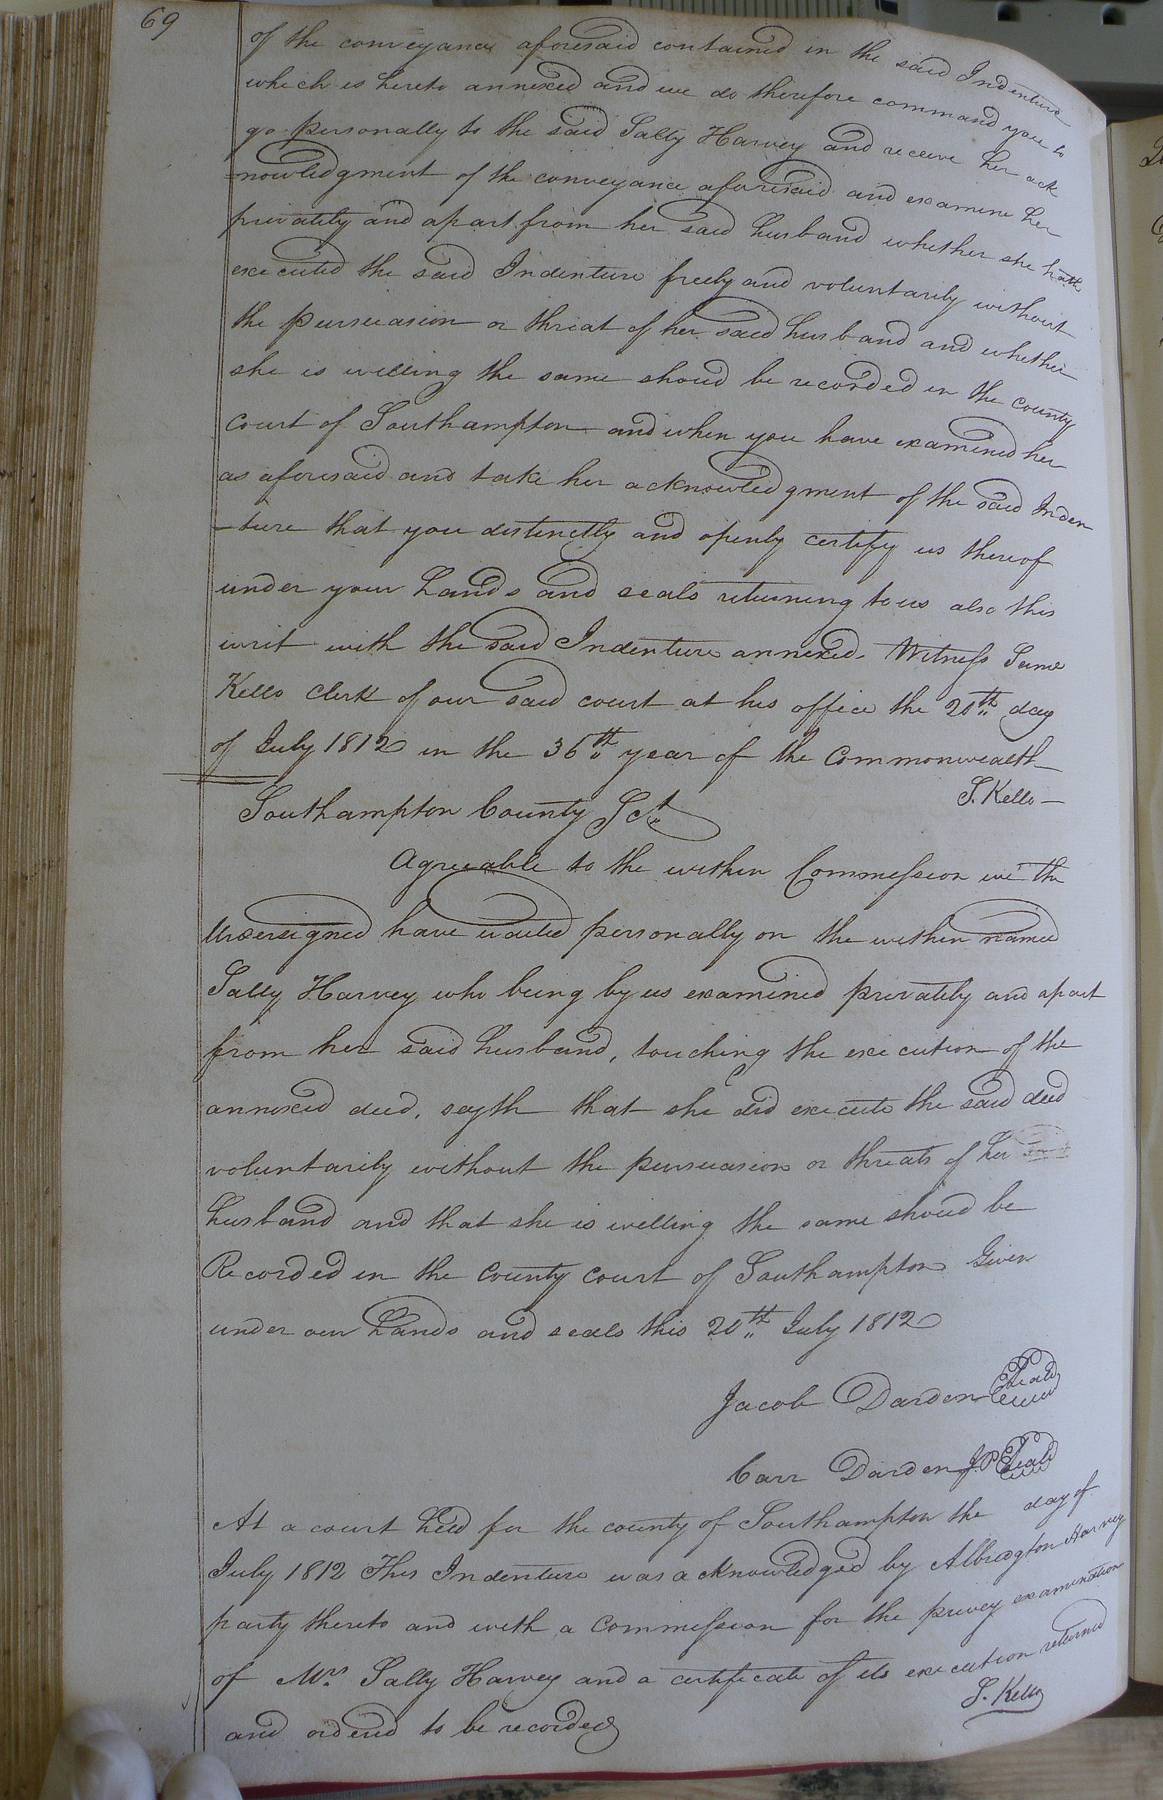 69
of the conveyance aforesaid contained in the said Indenture
which is hereto annexed and we do therefore command you to
go personally to the said Sally Harvey and receive her ack
=nowledgment of the conveyance aforesaid and examine her
privately and apart from her said husband whether she hath
executed the said Indenture freely and voluntarily without
the persuasion or threat of her said husband and whether
she is willing the same shoud be recorded in the county
court of Southampton and when you have examined her
as aforesaid and take her acknowledgment of the said Inden
-ture that you distinctly and openly certify us thereof
under your hands and seals returning to us also this
writ with the said Indenture annexed. Witness
Kello clerk of our said court at his office the 20th day
of July 1812 in the 36th year of the Commonwealth
S. Kello
Southampton County Sct
Agreeable to the within Commission we the
Undersigned have waited personally on the within named
Sally Harvey who being by us examined privately and apart
from her said husband, touching the execution of the
annexed deed, sayth that she did execute the said deed
voluntarily without the persuasion or threats of her
husband and that she is willing the same shoud be
Recorded in the county court of Southampton Given
under our hands and seals this 20th July 1812
Jacob Darden Seal
Carr Darden J.P. Seal
At a court held for the county of Southampton the day of
July 1812 This Indenture was acknowledged by Albridgton Harvey
party thereto and with a commission for the privey examination
of Mrs. Sally Harvey and a certificate of its execution returned
and ordered to be recorded
S. Kello